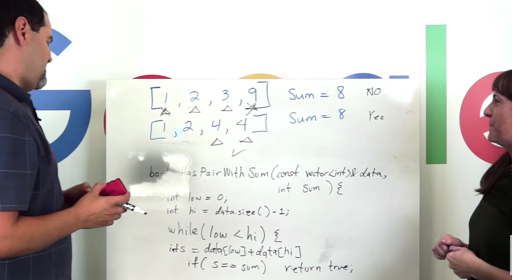 [1, 2, 3, 9] Sum = 8 NO
[1, 2, 4, 4] Sum = 8 Yes
PairWithSum (const vector<int>& data,
int sum) {
int low = 0;
int hi = data.size() - 1;
while (low < hi) {
int s = data[low] + data[hi]
if ( s == sum) return true;